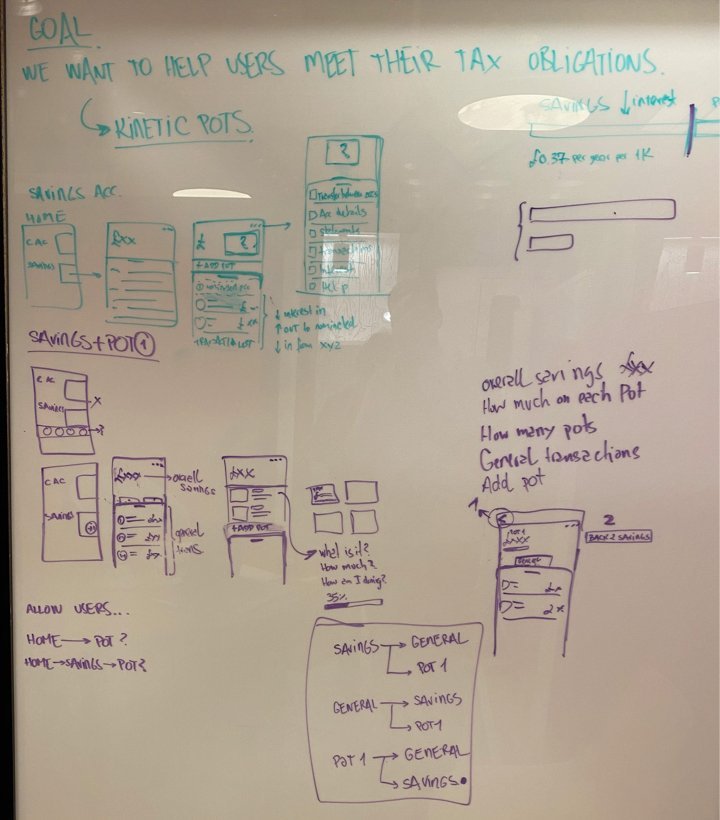 GOAL.
WE WANT TO HELP USERS MEET THEIR TAX OBLIGATIONS.
KINETIC POTS.
SAVINGS ↓ interest
£0.37 per year per 1K
SAVINGS ACC.
HOME
CAC
SAVINGS
£xx
£
?
+ ADD POT
£ xx
?
Transfer between accs
Acc details
Statements
Help
↓ interest in
↑ out to nominated
↓ in from xyz
SAVINGS + POT 1
CAC
SAVINGS
X
?
CAC
SAVINGS
£xxx → overall savings
general trans
£XX
+ ADD POT
what is it?
How much?
How am I doing?
35%
overall savings £xxx
How much on each Pot
How many pots
General transactions
Add pot
1
POT 1
£xxx
2
BACK 2 SAVINGS
ALLOW USERS...
HOME → POT?
HOME → SAVINGS → POT?
SAVINGS → GENERAL
→ POT 1
GENERAL → SAVINGS
→ POT 1
POT 1 → GENERAL
→ SAVINGS